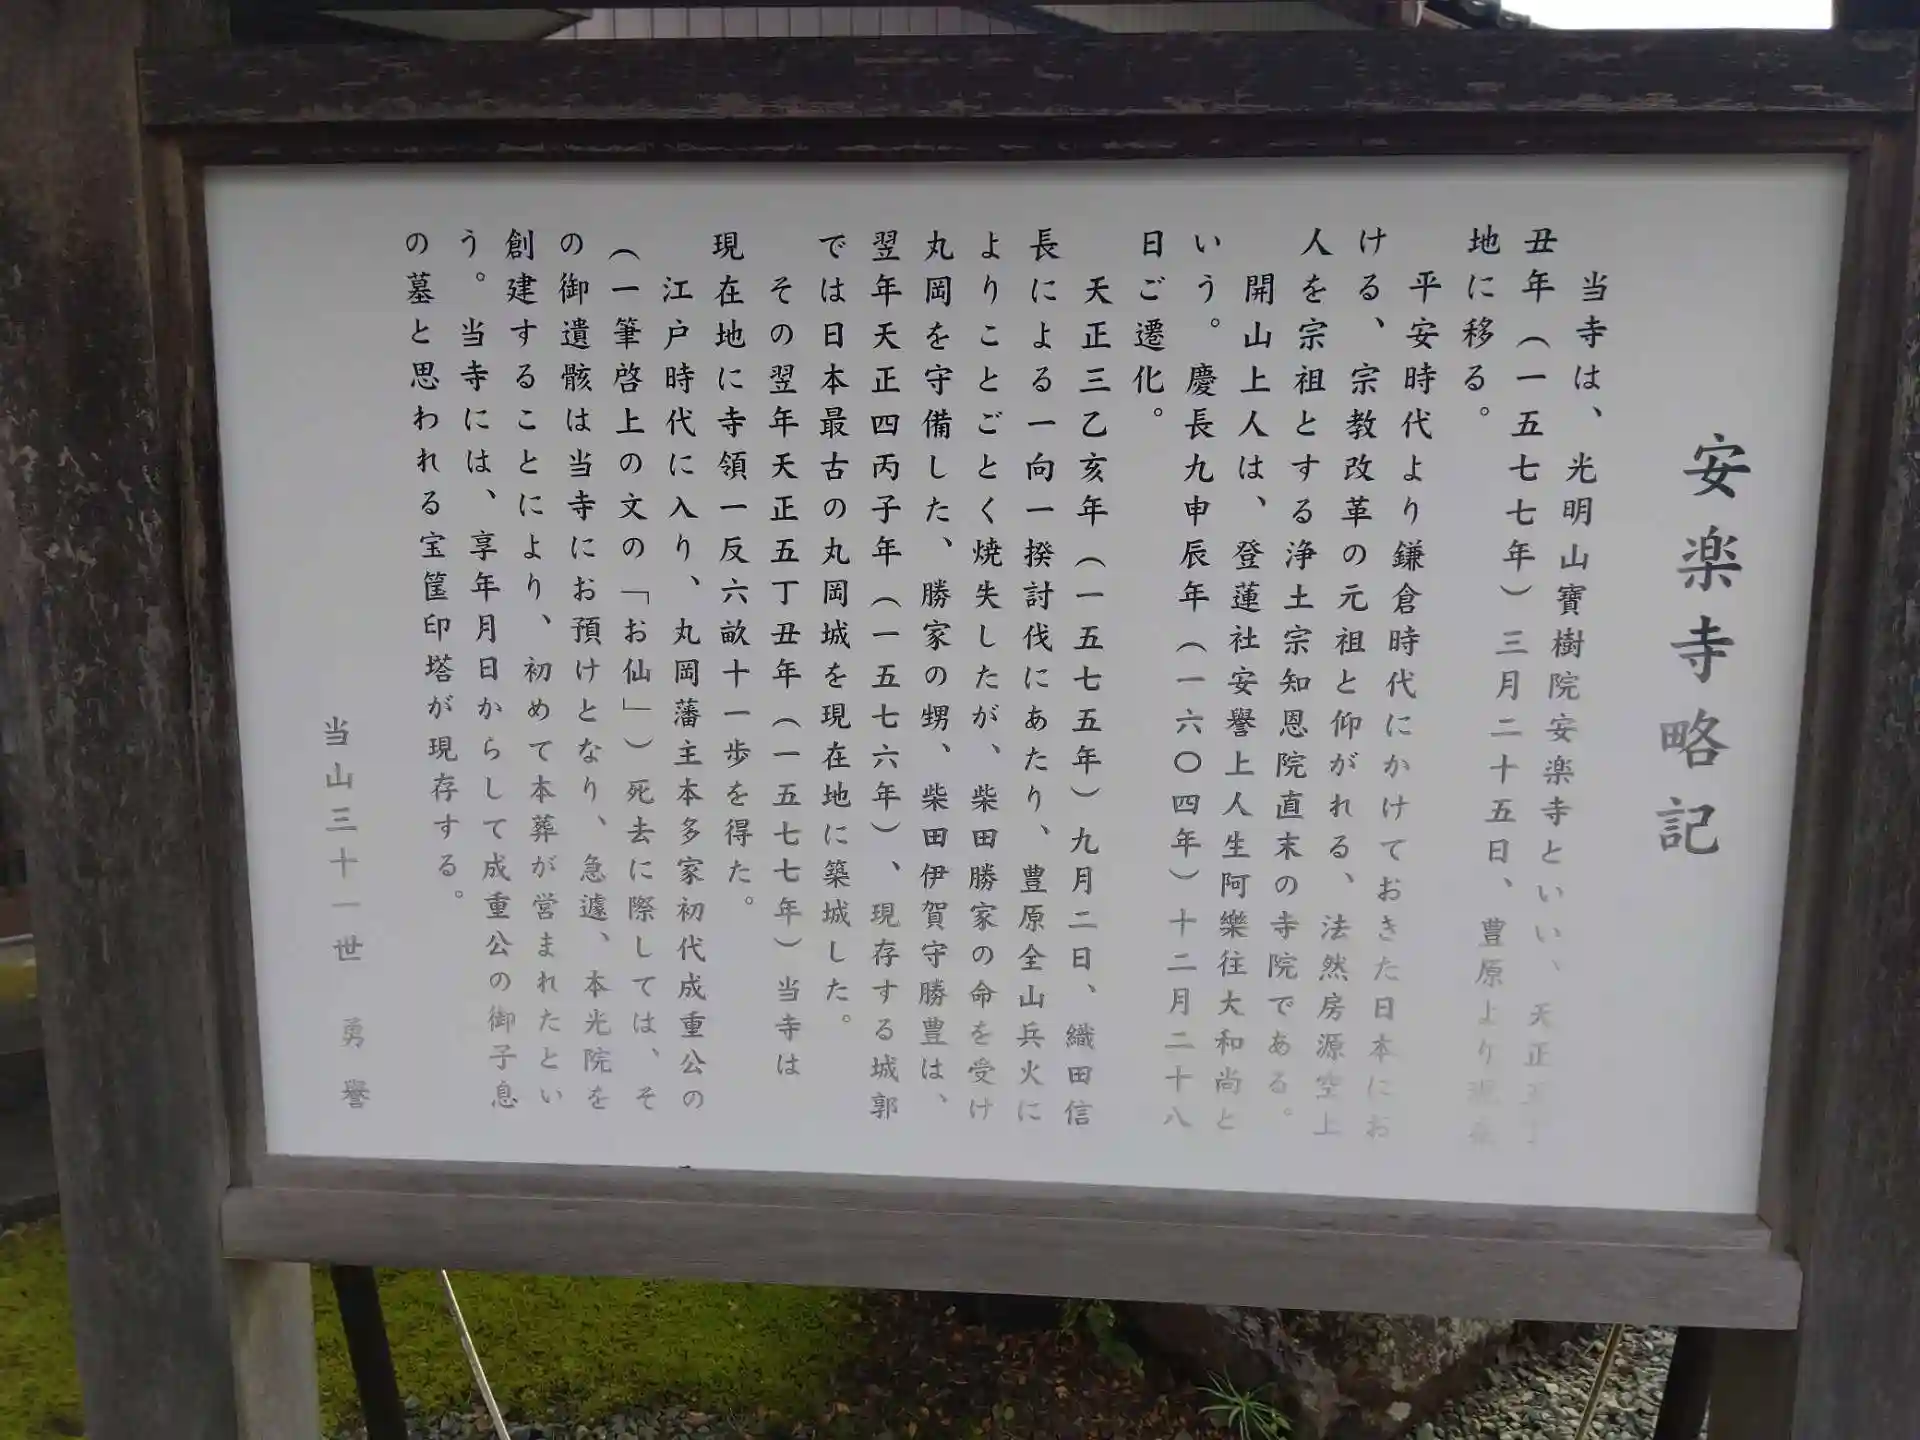 安楽寺略記
当寺は、光明山寶樹院安楽寺といい、天正五丁
丑年（一五七七年）三月二十五日、豊原より現在
地に移る。
平安時代より鎌倉時代にかけておきた日本にお
ける、宗教改革の元祖と仰がれる、法然房源空上
人を宗祖とする浄土宗知恩院直末の寺院である。
開山上人は、登蓮社安譽上人生阿樂往大和尚と
いう。慶長九申辰年（一六〇四年）十二月二十八
日ご遷化。
天正三乙亥年（一五七五年）九月二日、織田信
長による一向一揆討伐にあたり、豊原全山兵火に
よりことごとく焼失したが、柴田勝家の命を受け
丸岡を守備した、勝家の甥、柴田伊賀守勝豊は、
翌年天正四丙子年（一五七六年）、現存する城郭
では日本最古の丸岡城を現在地に築城した。
その翌年天正五丁丑年（一五七七年）当寺は
現在地に寺領一反六畝十一歩を得た。
江戸時代に入り、丸岡藩主本多家初代成重公の
（一筆啓上の文の「お仙」）死去に際しては、そ
の御遺骸は当寺にお預けとなり、急遽、本光院を
創建することにより、初めて本葬が営まれたとい
う。当寺には、享年月日からして成重公の御子息
の墓と思われる宝筐印塔が現存する。
当山三十一世　勇譽